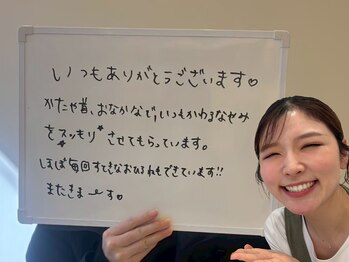 いつもありがとうございます♡
かたや首、おなかなど、いつもかわるなやみ
をスッキリさせてもらっています。
ほぼ毎回すてきなおひるねもできています!!
またきまーす♡